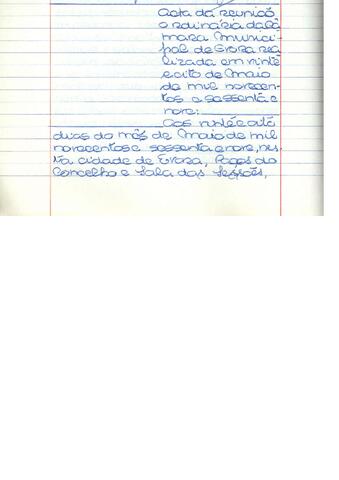 Acta da reunião
ordinária da Câ-
mara Munici-
pal de Évora rea-
lizada em vinte
e oito de Maio
de mil novecen-
tos e sessenta e
nove:
Aos vinte e oito
dias do mês de Maio de mil
novecentos e sessenta e nove, nes-
ta cidade de Évora, Paços do
Concelho e Sala das Sessões,